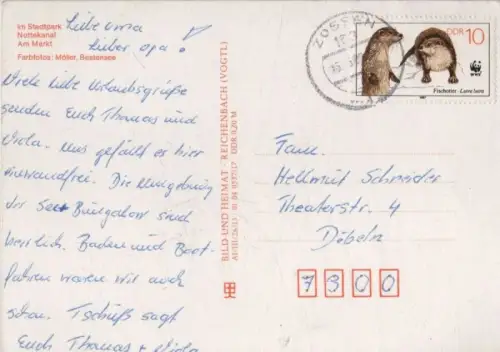 Im Stadtpark
Nottekanal
Am Markt
Farbfotos: Möller, Bestensee
Liebe Oma
lieber Opa!
Viele liebe Urlaubsgrüße
senden Euch Thomas und
Viola. Uns gefällt es hier
einwandfrei. Die Umgebung
der Bungalow sind
herrlich. Baden und Boot
fahren waren wir auch
schon. Tschüß sagt
Euch Thomas + Viola
BILD UND HEIMAT REICHENBACH (VOGTL)
DDR 0,20 M
ZOSSEN
DDR 10
WWF
Fischotter · Lutra lutra
Fam.
Hellmut Schneider
Theaterstr. 4
Döbeln
7300